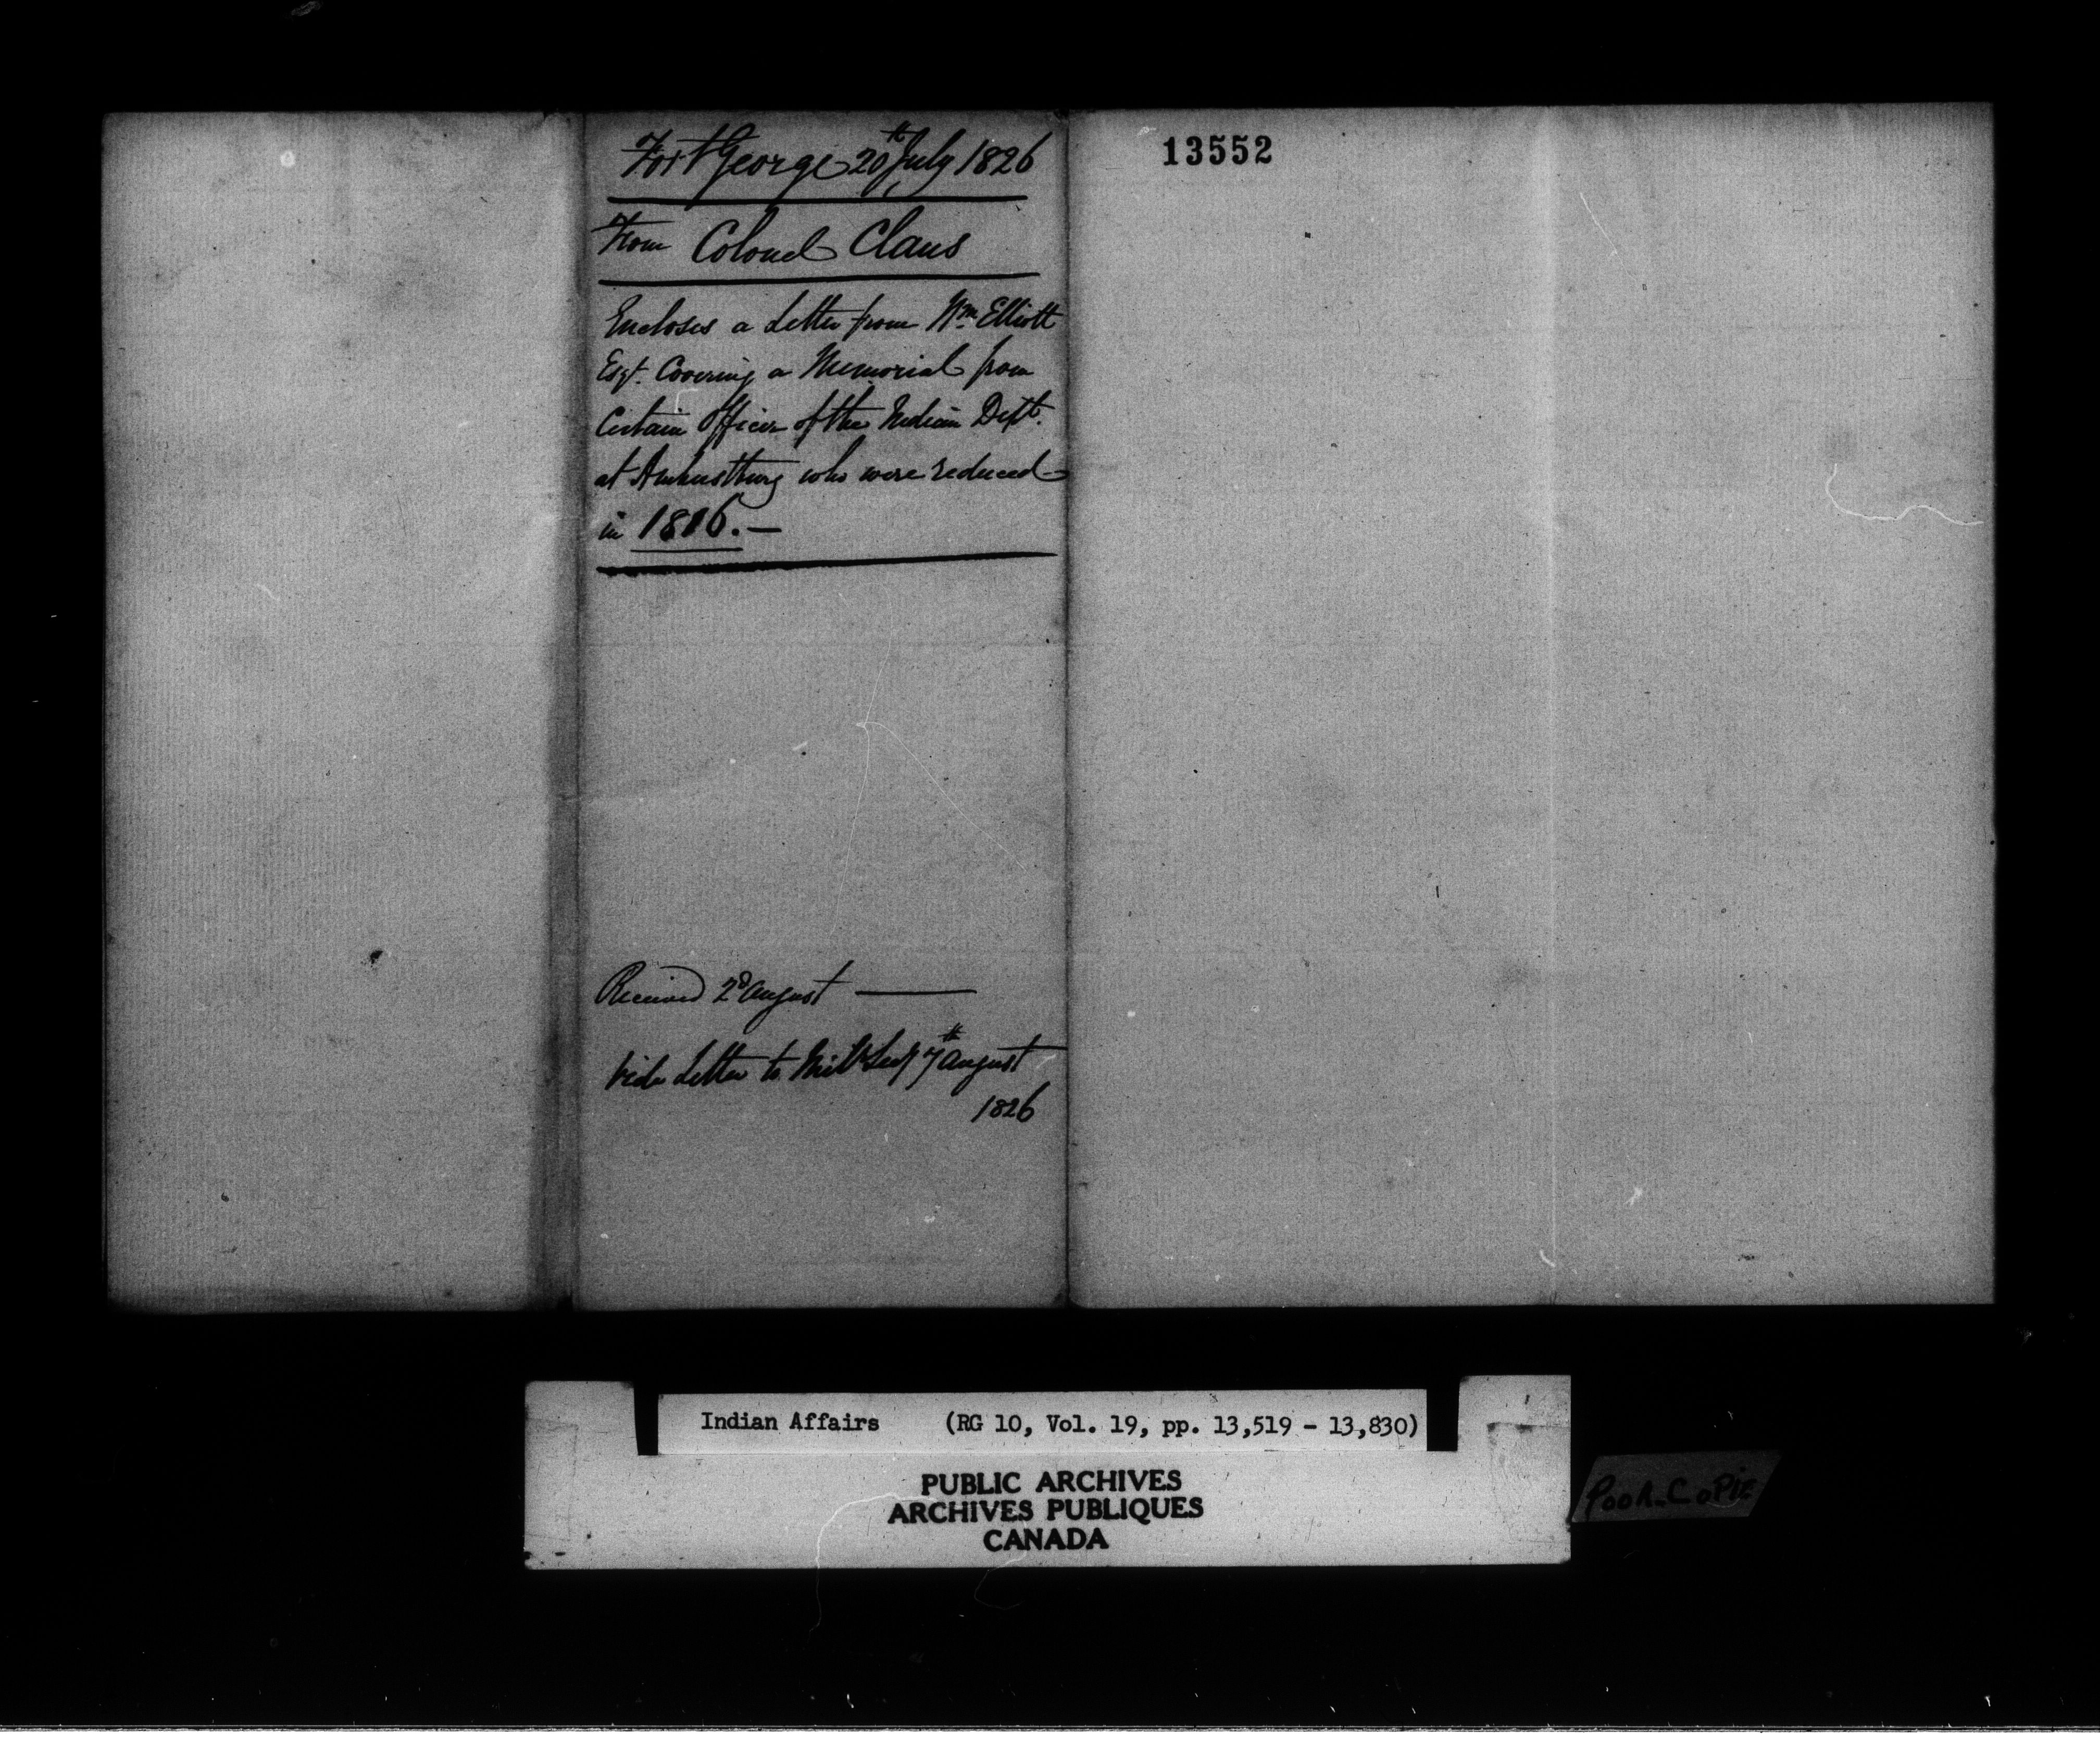 Fort George 20th July 1826
From Colonel Claus
Encloses a Letter from Wm Elliott
Esqr. Covering a Memorial from
Certain Officers of the Indian Dept.
at Amherstburg who were reduced
in 1816.—
Received 2d August —
Vide Letter to Mily Secy 7th August
1826
13552
Indian Affairs (RG 10, Vol. 19, pp. 13,519 - 13,830)
PUBLIC ARCHIVES
ARCHIVES PUBLIQUES
CANADA
POOR COPIE